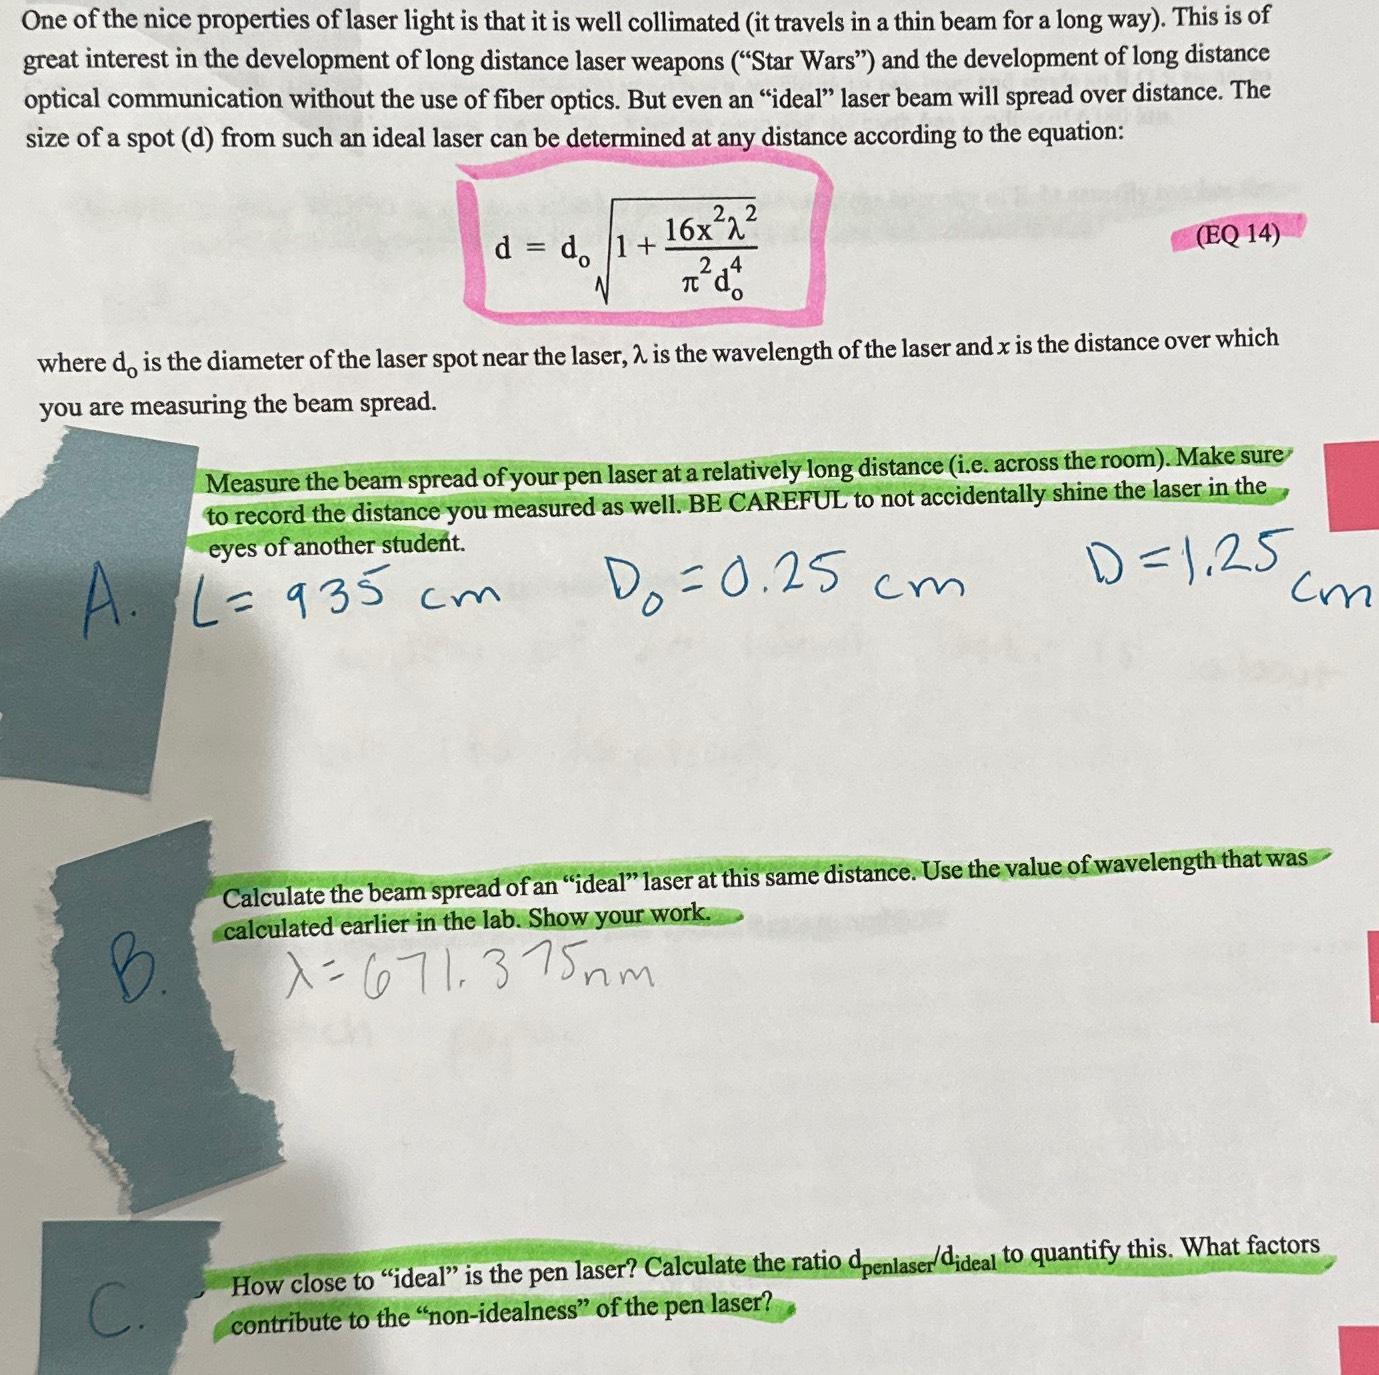 One of the nice properties of laser light is that it is well collimated (it travels in a thin beam for a long way). This is of
great interest in the development of long distance laser weapons (“Star Wars”) and the development of long distance
optical communication without the use of fiber optics. But even an “ideal” laser beam will spread over distance. The
size of a spot (d) from such an ideal laser can be determined at any distance according to the equation:
d = d₀ √(1 + 16x²λ² / π²d₀⁴)
(EQ 14)
where d₀ is the diameter of the laser spot near the laser, λ is the wavelength of the laser and x is the distance over which
you are measuring the beam spread.
Measure the beam spread of your pen laser at a relatively long distance (i.e. across the room). Make sure
to record the distance you measured as well. BE CAREFUL to not accidentally shine the laser in the
eyes of another student.
A. L = 935 cm D₀ = 0.25 cm D = 1.25 cm
Calculate the beam spread of an “ideal” laser at this same distance. Use the value of wavelength that was
calculated earlier in the lab. Show your work.
B. λ = 671.375nm
How close to “ideal” is the pen laser? Calculate the ratio dpenlaser/dideal to quantify this. What factors
contribute to the “non-idealness” of the pen laser?
C.